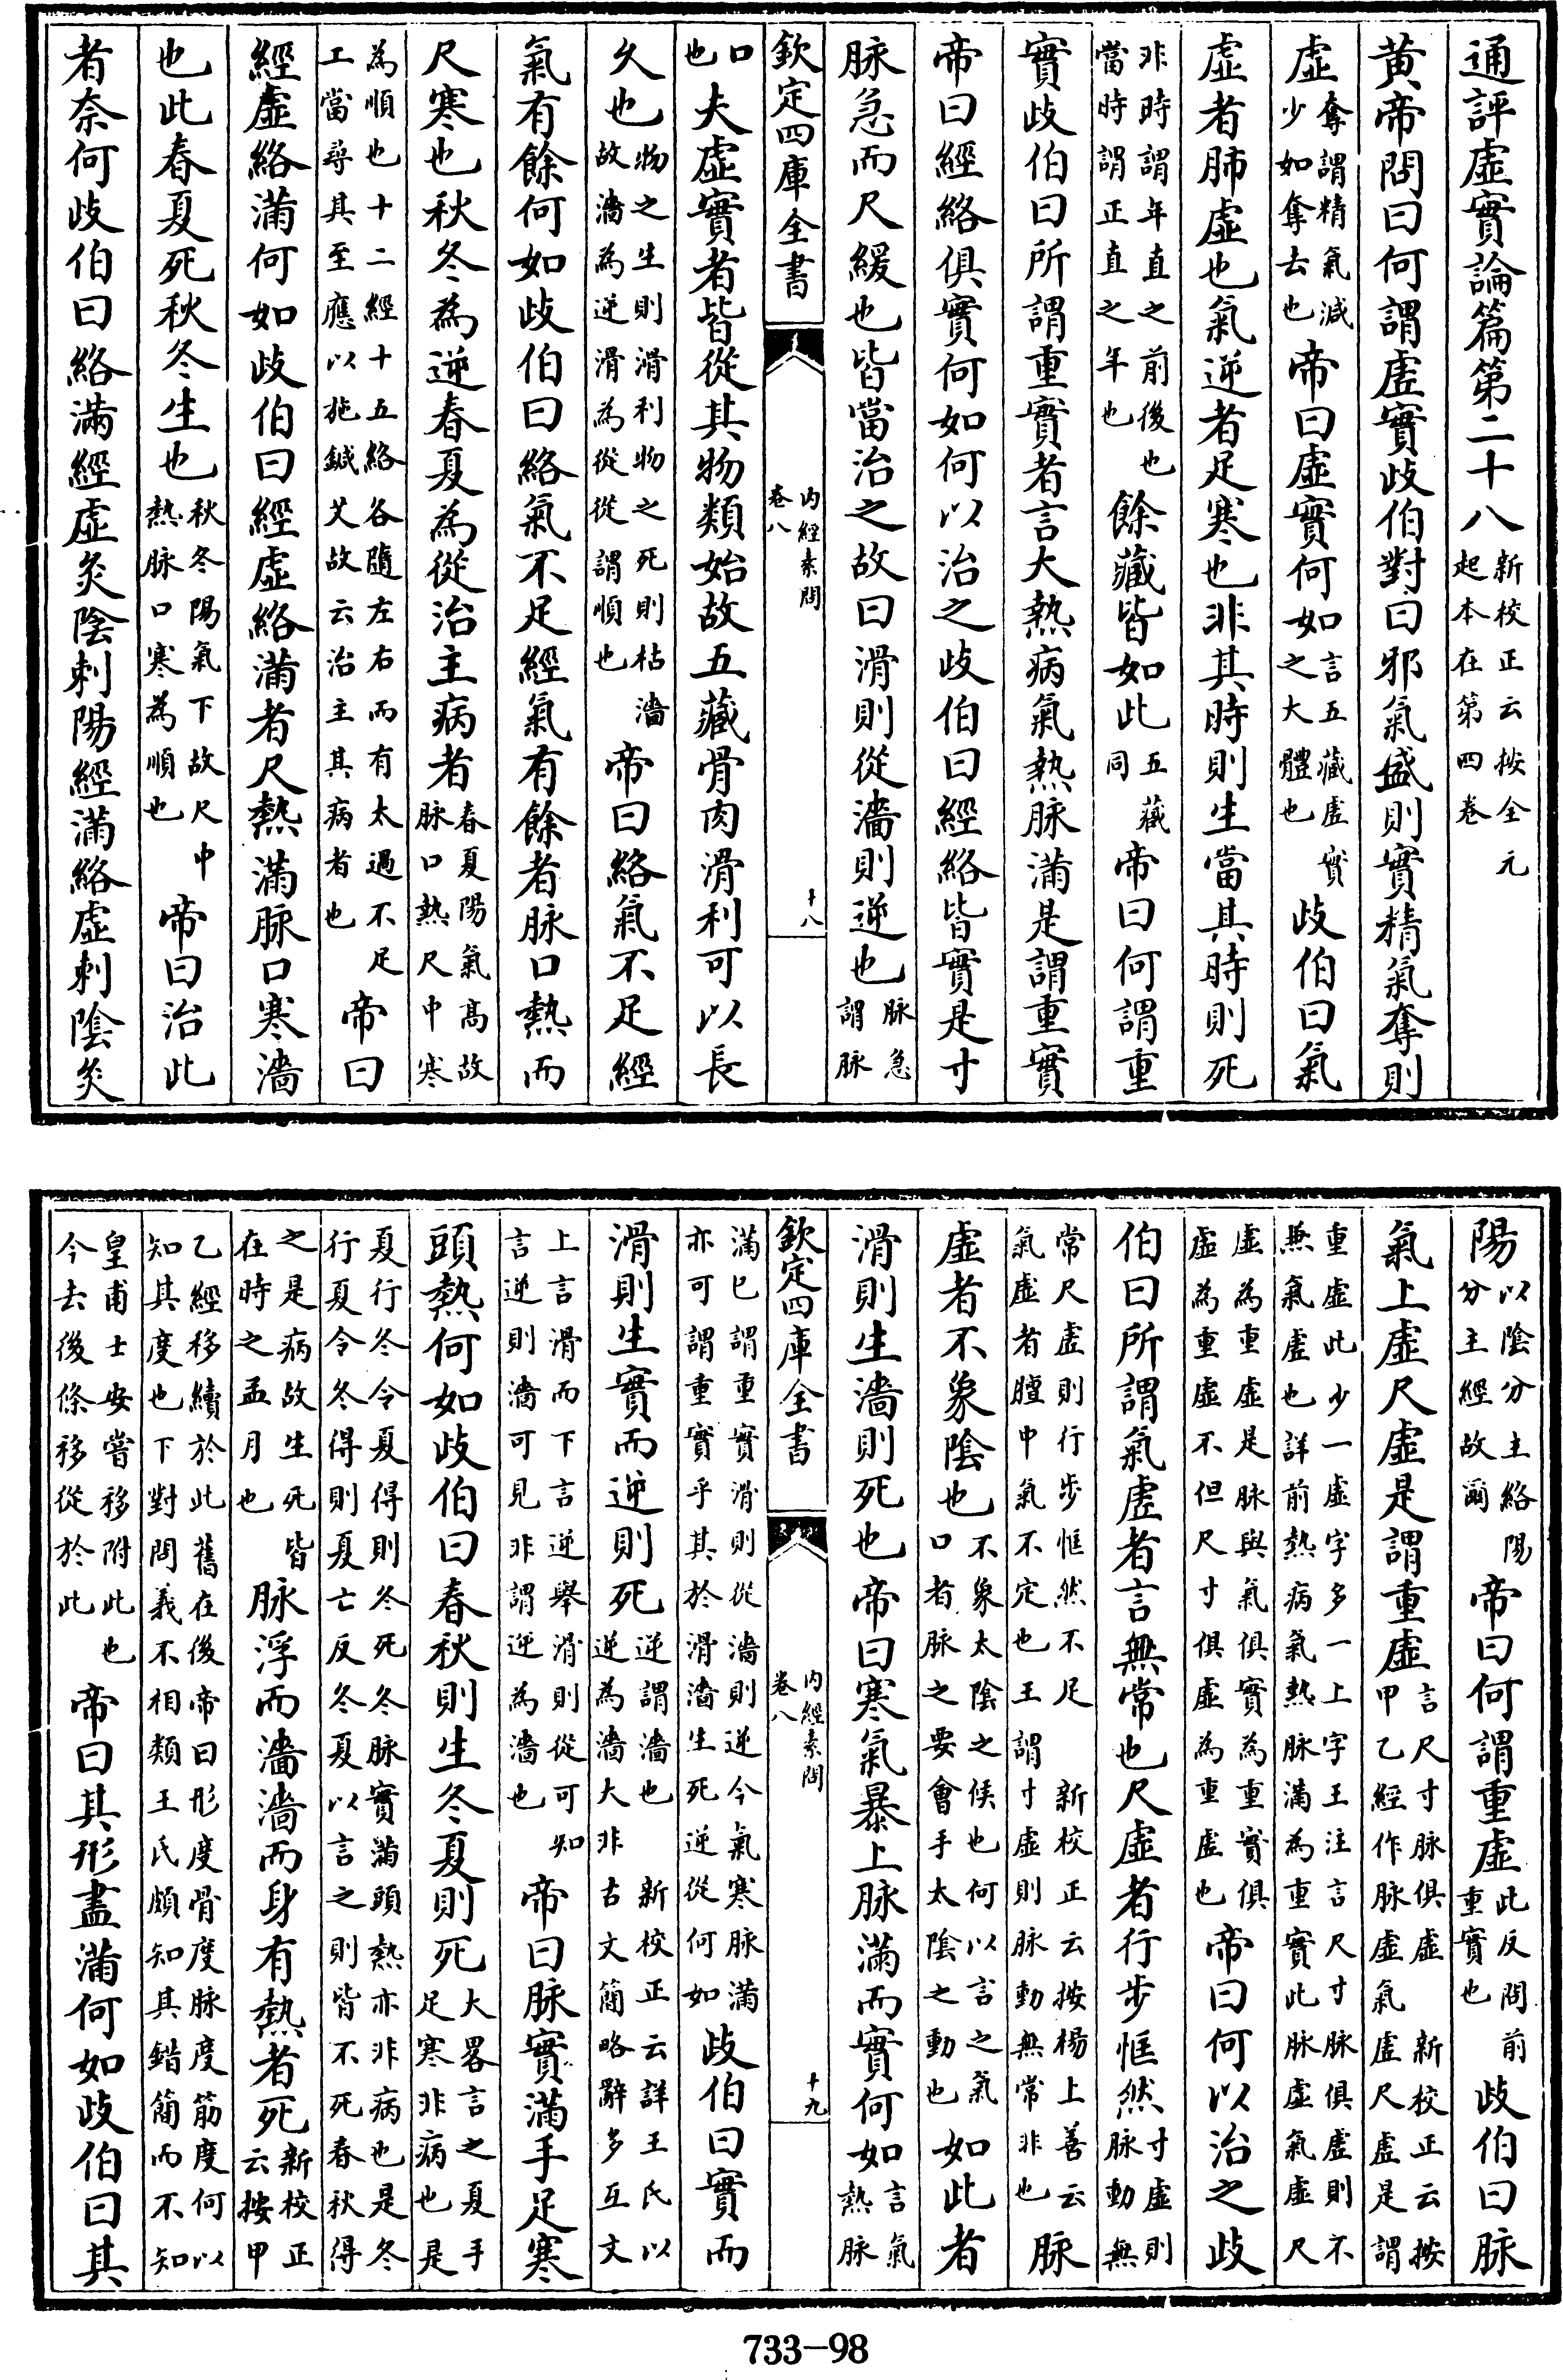 通評虛實論篇第二十八新校正云按全元起本在第四卷
黃帝問曰何謂虛實歧伯對曰邪氣盛則實精氣奪則
虛奪謂精氣減少如奪去也帝曰虛實何如言五藏虛實之大體也歧伯曰氣
虛者肺虛也氣逆者足寒也非其時則生當其時則死
非時謂年直之前後也當時謂正直之年也餘藏皆如此五藏同帝曰何謂重
實歧伯曰所謂重實者言大熱病氣熱脉滿是謂重實
帝曰經絡俱實何如何以治之歧伯曰經絡皆實是寸
脉急而尺緩也皆當治之故曰滑則從濇則逆也脉急謂脉
欽定四庫全書 內經素問卷八 十八
口也夫虛實者皆從其物類始故五藏骨肉滑利可以長
久也物之生則滑利物之死則枯濇故濇為逆滑為從從謂順也帝曰絡氣不足經
氣有餘何如歧伯曰絡氣不足經氣有餘者脉口熱而
尺寒也秋冬為逆春夏為從治主病者春夏陽氣高故脉口熱尺中寒
為順也十二經十五絡各隨左右而有太過不足工當尋其至應以施鍼艾故云治主其病者也帝曰
經虛絡滿何如歧伯曰經虛絡滿者尺熱滿脉口寒濇
也此春夏死秋冬生也秋冬陽氣下故尺中熱脉口寒為順也帝曰治此
者奈何歧伯曰絡滿經虛灸陰刺陽經滿絡虛刺陰灸
陽以陰分主絡陽分主經故爾帝曰何謂重虛此反問前重實也歧伯曰脉
氣上虛尺虛是謂重虛言尺寸脉俱虛新校正云按甲乙經作脉虛氣虛尺虛是謂
重虛此少一虛字多一上字王注言尺寸脉俱虛則不兼氣虛也詳前熱病氣熱脉滿為重實此脉虛氣虛尺
虛為重虛是脉與氣俱實為重實俱虛為重虛不但尺寸俱虛為重虛也帝曰何以治之歧
伯曰所謂氣虛者言無常也尺虛者行步恇然寸虛則脉動無
常尺虛則行步恇然不足新校正云按楊上善云氣虛者膻中氣不定也王謂寸虛則脉動無常非也脉
虛者不象陰也不象太陰之候也何以言之氣口者脉之要會手太陰之動也如此者
滑則生濇則死也帝曰寒氣暴上脉滿而實何如言氣熱脉
欽定四庫全書 內經素問卷八 十九
滿已謂重實滑則從濇則逆今氣寒脉滿亦可謂重實乎其於滑濇生死逆從何如歧伯曰實而
滑則生實而逆則死逆謂濇也新校正云詳王氏以逆為濇大非古文簡略辭多互文
上言滑而下言逆舉滑則從可知言逆則濇可見非謂逆為濇也帝曰脉實滿手足寒
頭熱何如歧伯曰春秋則生冬夏則死大畧言之夏手足寒非病也是
夏行冬令夏得則冬死冬脉實滿頭熱亦非病也是冬行夏令冬得則夏亡反冬夏以言之則皆不死春秋得
之是病故生死皆在時之孟月也脉浮而濇濇而身有熱者死新校正云按甲
乙經移續於此舊在後帝曰形度骨度脉度筋度何以知其度也下對問義不相類王氏頗知其錯簡而不知
皇甫士安嘗移附此也今去後條移從於此帝曰其形盡滿何如歧伯曰其
733-98